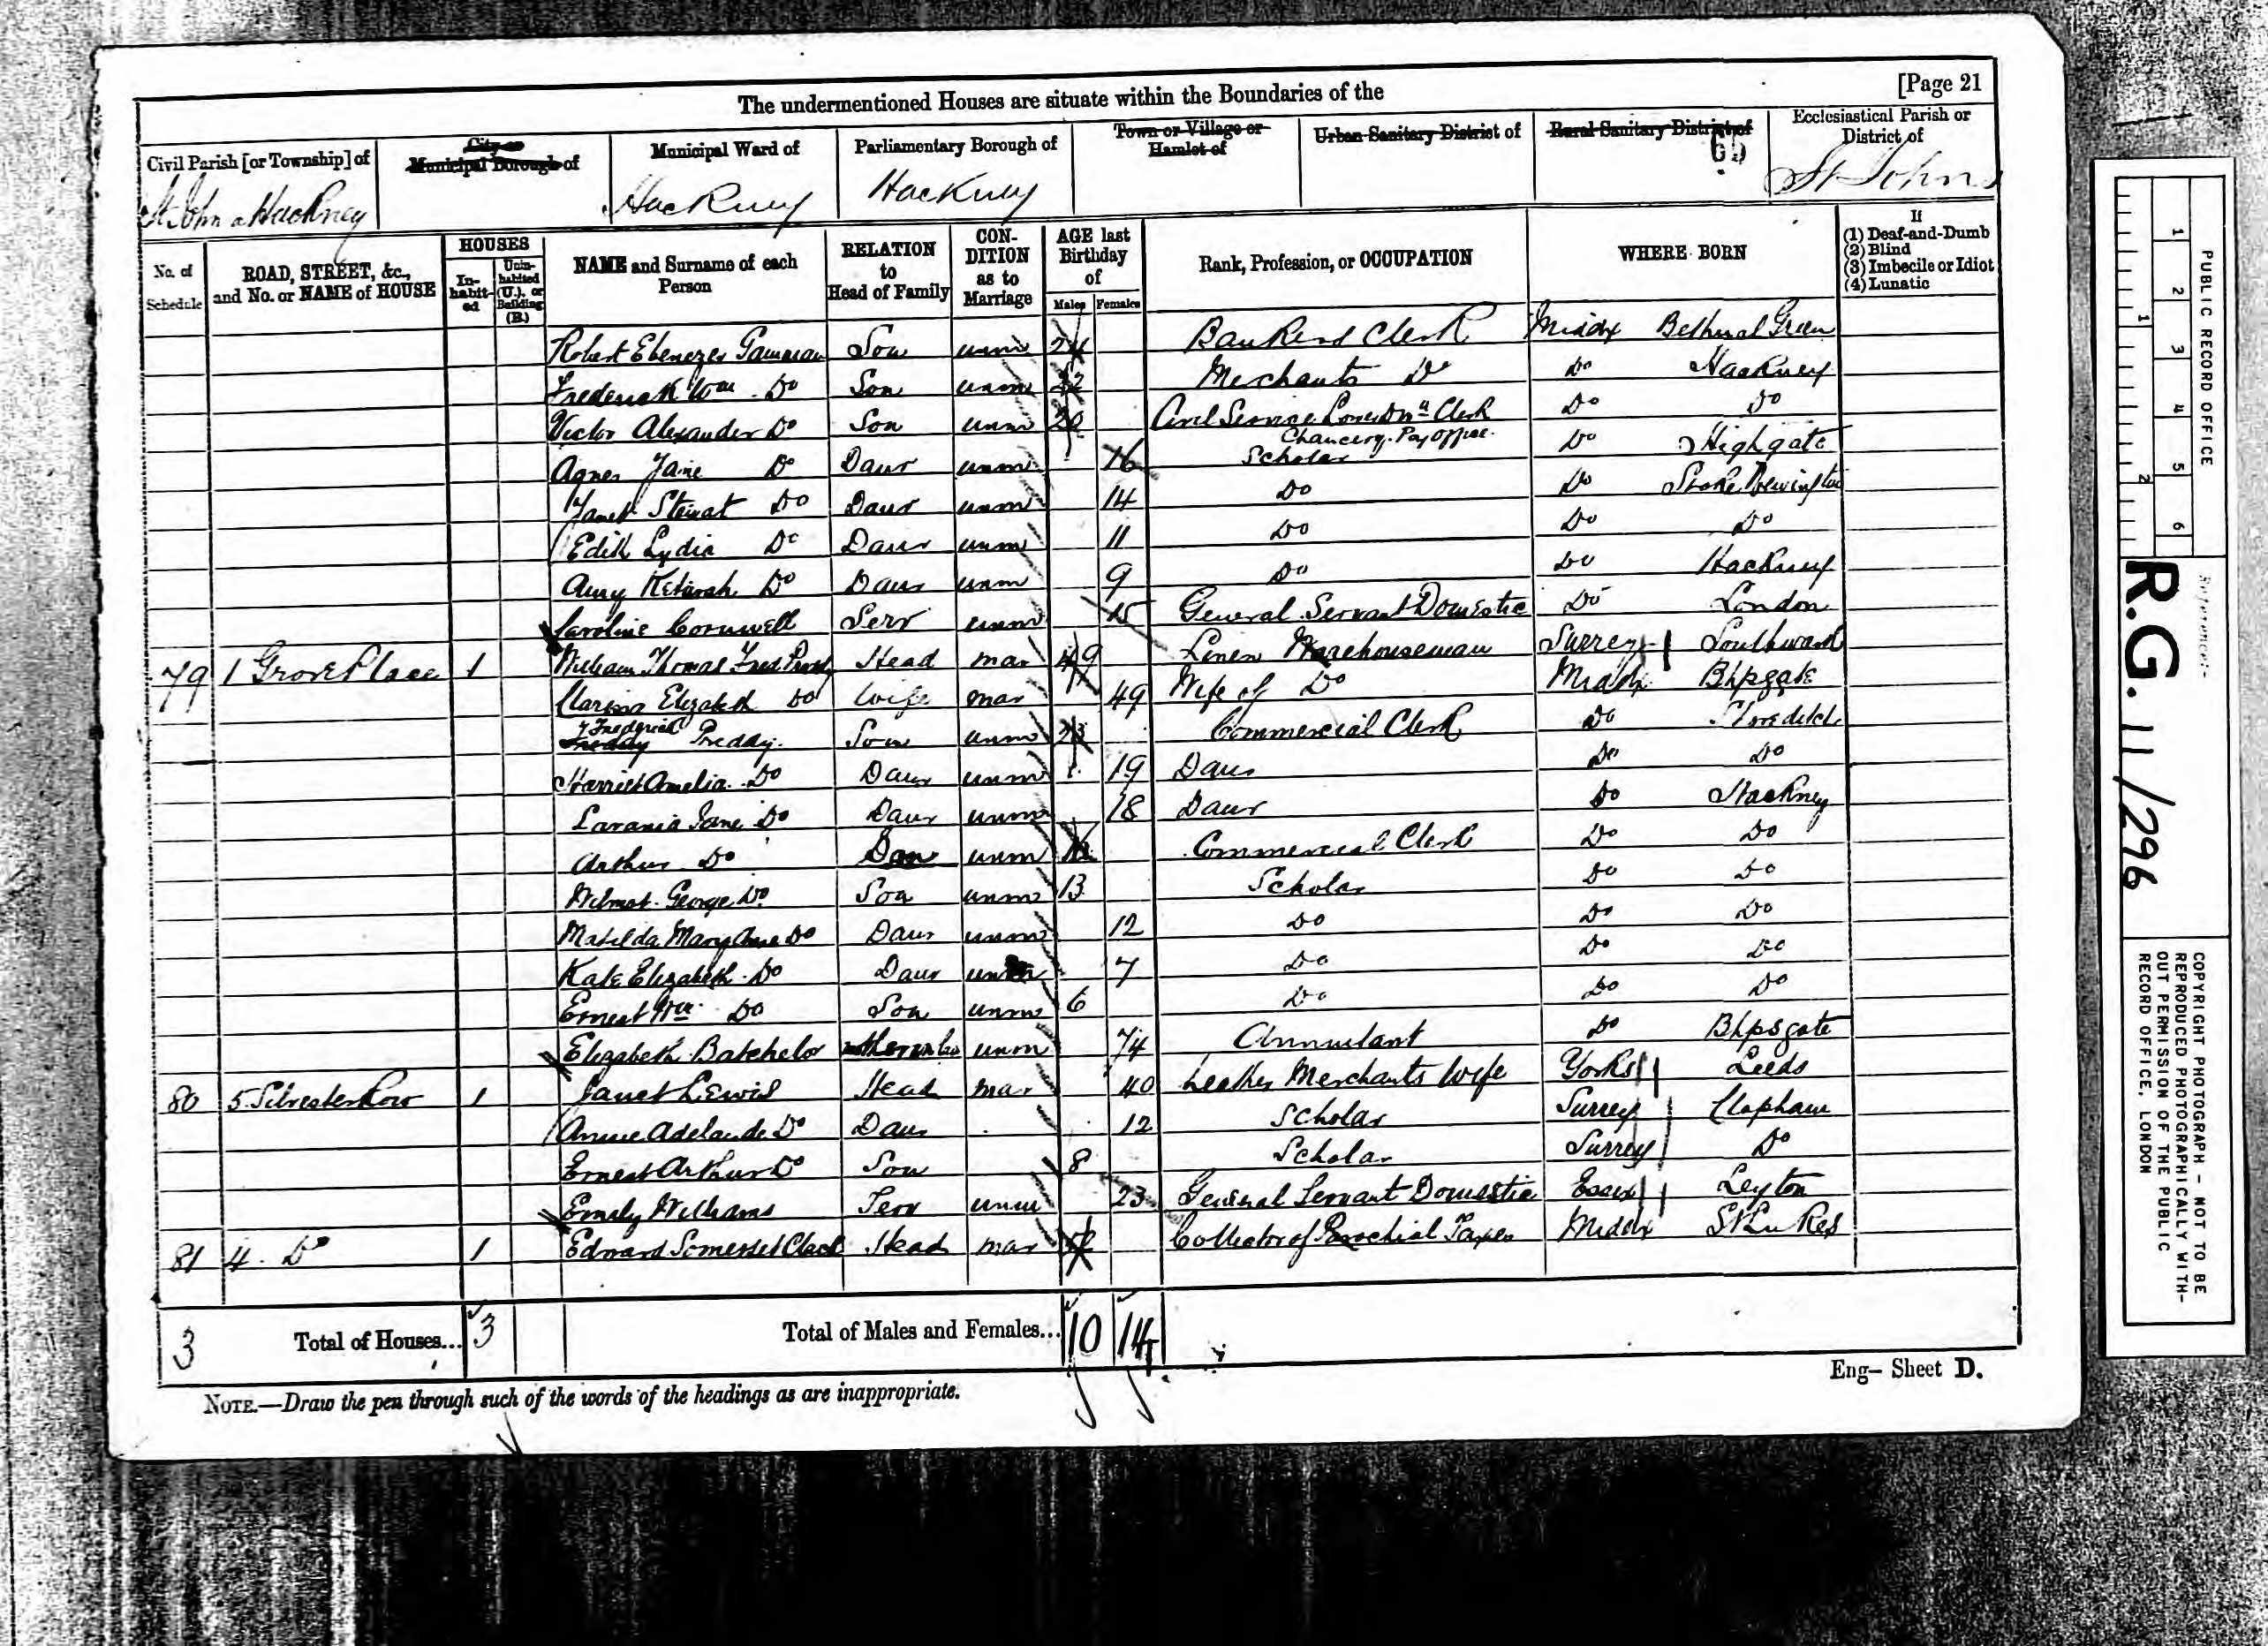 The undermentioned Houses are situate within the Boundaries of the
[Page 21
Civil Parish [or Township] of
City or Municipal Borough of
Municipal Ward of
Parliamentary Borough of
Town or Village or Hamlet of
Urban Sanitary District of
Rural Sanitary District of
Ecclesiastical Parish or District of
St John a Hackney
Hackney
Hackney
65
St Johns
No. of Schedule
ROAD, STREET, &c., and No. or NAME of HOUSE
HOUSES
In-habit-ed
Unin-habited (U.), or Building (B.)
NAME and Surname of each Person
RELATION to Head of Family
CON-DITION as to Marriage
AGE last Birthday of
Males
Females
Rank, Profession, or OCCUPATION
WHERE BORN
If
(1) Deaf-and-Dumb
(2) Blind
(3) Imbecile or Idiot
(4) Lunatic
Robert Ebenezer Son unm 24 Bankers Clerk Middx Bethnal Green
Frederick Wm Do Son unm 22 Merchants Do Do Hackney
Victor Alexander Do Son unm 20 Civil Service Clerk Do Do
Chancery Pay Office
Agnes Jane Do Daur unm 16 Scholar Do Highgate
Janet Stewat Do Daur unm 14 Do Do Stoke Newington
Edith Lydia Do Daur unm 11 Do Do Do
Amy Keturah Do Daur unm 9 Do Do Hackney
Caroline Cornwell Serv unm 15 General Servant Domestic Do London
79 1 Grove Place 1 William Thomas Fred Preddy Head mar 49 Linen Warehouseman Surrey Southwark
Clarissa Elizabeth Do Wife mar 49 Wife of Do Middx Bhpsgate
Frederick Preddy Son unm 23 Commercial Clerk Do Shoreditch
Harriet Amelia Do Daur unm 19 Daur Do Do
Lavania Jane Do Daur unm 18 Daur Do Hackney
Arthur Do Son unm 16 Commercial Clerk Do Do
Wilmot George Do Son unm 13 Scholar Do Do
Matilda Mary Anne Do Daur unm 12 Do Do Do
Kate Elizabeth Do Daur unm 7 Do Do Do
Ernest Wm Do Son unm 6 Do Do Do
Elizabeth Batchelor unm 74 Annuitant Do Bhpsgate
80 5 Silvester Row 1 Janet Lewis Head mar 40 Leather Merchants Wife Yorks Leeds
Annie Adelaide Do Daur 12 Scholar Surrey Clapham
Ernest Arthur Do Son 8 Scholar Surrey Do
Emily Williams Serv unm 23 General Servant Domestic Essex Leyton
81 4 Do 1 Edward Somerset Clack Head mar Collector of Parochial Taxes Middx St Lukes
3 Total of Houses... 3 Total of Males and Females... 10 14
NOTE.—Draw the pen through such of the words of the headings as are inappropriate.
Eng– Sheet D.
PUBLIC RECORD OFFICE
1 2 3 4 5 6
1 2
Reference:-
R.G. 11/296
COPYRIGHT PHOTOGRAPH - NOT TO BE
REPRODUCED PHOTOGRAPHICALLY WITH-
OUT PERMISSION OF THE PUBLIC
RECORD OFFICE, LONDON